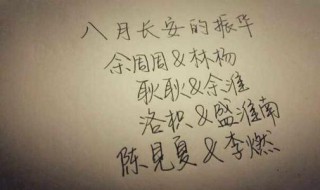 八月长安的振华
余周周&林杨
耿耿&余淮
洛枳&盛淮南
陈見夏&李燃